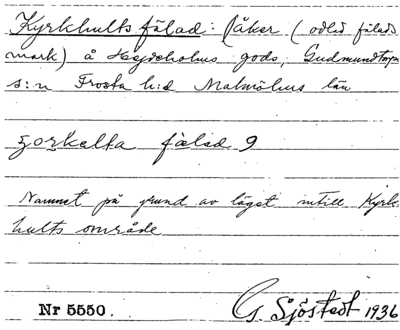 Kyrkhults fälad: (åker (odlad fälads
mark) å Hejdeholms gods, Gudmundtorps
s:n Frosta h:d Malmöhus län
fälad
Namnet på grund av läget intill Kyrk-
hults område
Nr 5550.
G Sjöstedt 1936